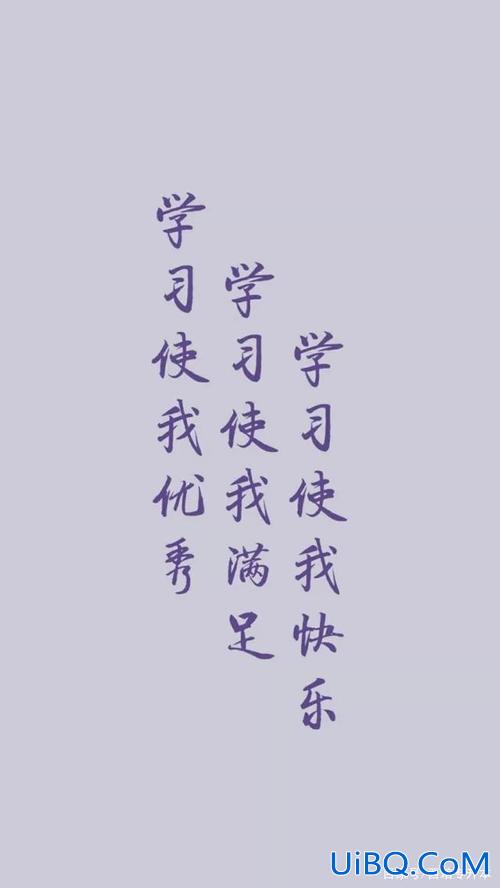 学习使我优秀
学习使我满足
学习使我快乐
UiBQ.CoM